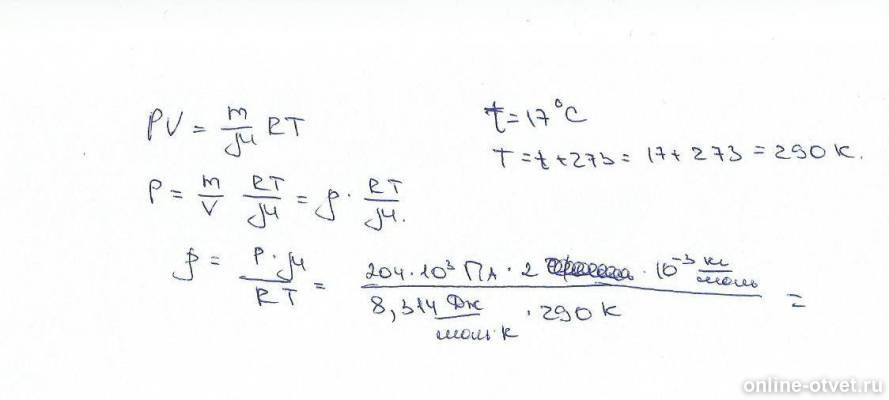 PV = m/μ RT
t = 17°C
T = t + 273 = 17 + 273 = 290 К.
P = m/V RT/μ = ρ · RT/μ.
ρ = P · μ / RT = 204 · 10³ Па · 2 · 10⁻³ кг/моль / 8,314 Дж/моль·К · 290 К =
online-otvet.ru